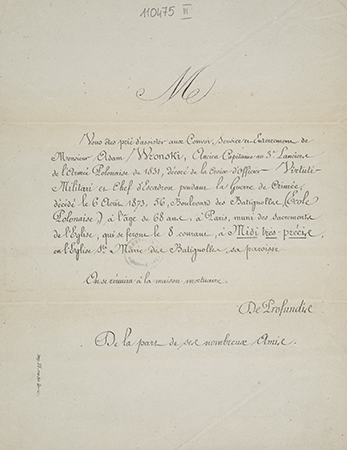 110475 III
M
Vous êtes prié d'assister aux Convoi, Service et Enterrement de
Monsieur Adam Wronski, Ancien Capitaine au 5e Lanciers
de l'Armée Polonaise de 1831, décoré de la Croix d'Officier Virtuti
Militari et Chef d'Escadron pendant la Guerre de Crimée,
décédé le 6 Août 1873, 56, Boulevard des Batignolles (Ecole
Polonaise) à l'âge de 68 ans, à Paris, muni des sacrements
de l'Eglise, qui se feront le 8 courant, à Midi très précis,
en l'Eglise Ste Marie des Batignolles, sa paroisse.
On se réunira à la maison mortuaire.
De Profundis
De la part de ses nombreux Amis.